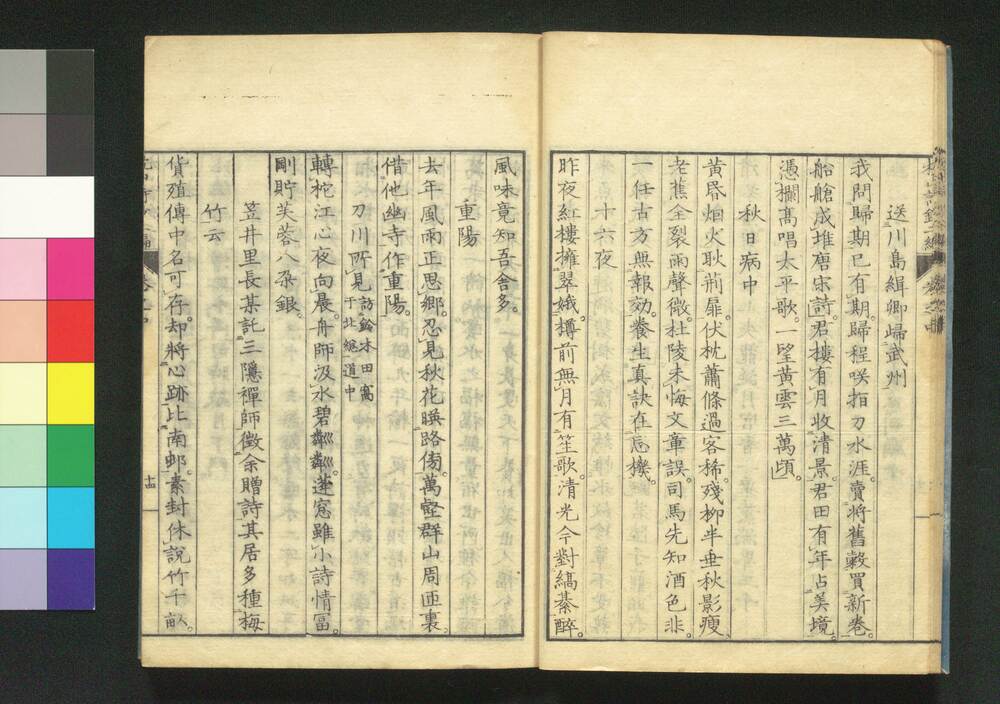 送川島緝卿歸武州
我問歸期已有期。歸程咲指刀水涯。賣將舊穀買新卷。
船艙成堆唐宋詩。君樓有月收清景。君田有年占美境。
憑欄高唱太平歌。一望黃雲三萬頃。
秋日病中
黃昏烟火耿荊扉。伏枕蕭條過客稀。殘柳半垂秋影瘦。
老蕉全裂雨聲微。杜陵未悔文章誤。司馬先知酒色非。
一任古方無報効。養生真訣在忘機。
十六夜
昨夜紅樓擁翠娥。樽前無月有笙歌。清光今對縞綦醉。
風味竟知吾舍多。
重陽
去年風雨正思鄉。忍見秋花暎路傍。萬壑群山周匝裏。
借他幽寺作重陽。
刀川所見訪鈴木田窩
于北總道中
轉柁江心夜向晨。舟師汲水碧粼粼。蓬窓雖小詩情冨。
剛貯芙蓉八朶銀。
笠井里長某託三隱禪師徵余贈詩其居多種梅
竹云
貨殖傳中名可存。却將心跡比南邨。素封休說竹千畝。
十四